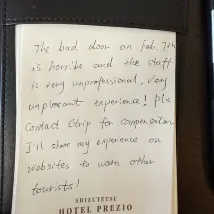 The bad door on Feb. 7th
is horrible and the staff
is very unprofessional. Very
unpleasant experience! Pls
Contact Ctrip for compensation
I'll share my experience on
websites to warn other
tourists!
SHIZUTETSU
HOTEL PREZIO